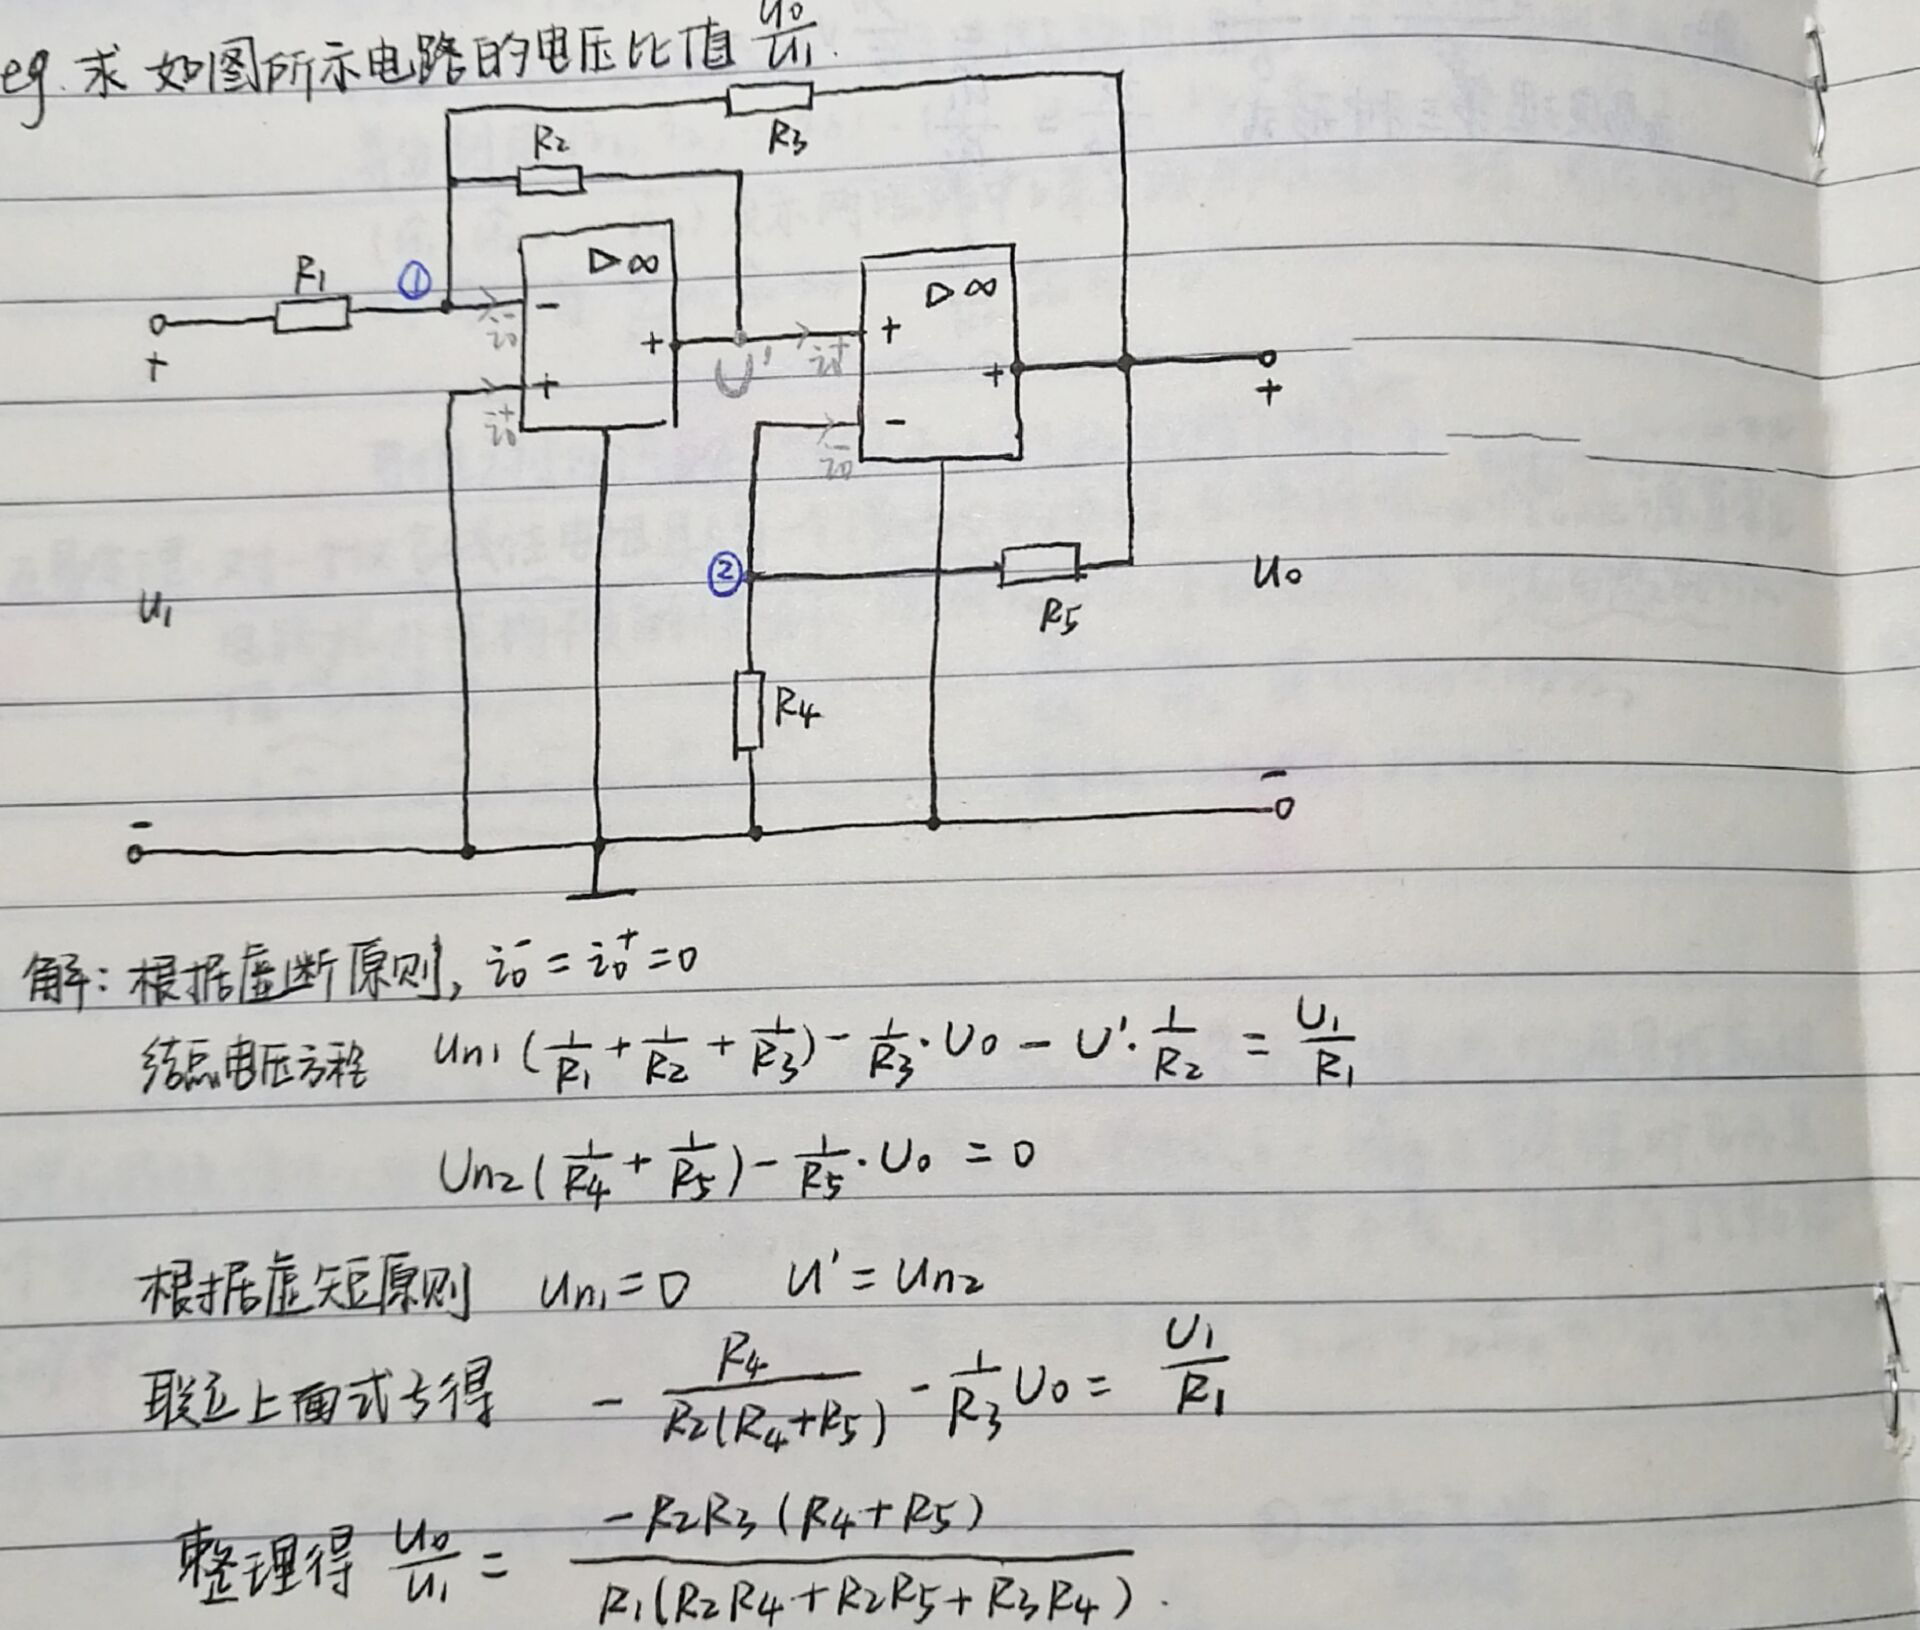 eg. 求如图所示电路的电压比值 u₀/u₁.
R₃
R₂
▷∞
R₁ ①
▷∞
- i₀⁻
+ U' i₀⁺ +
+
+ i₀⁺
+
+
- i₀⁻
②
u₁ u₀
R₅
R₄
- -
解: 根据虚断原则, i₀⁻ = i₀⁺ = 0
结点电压方程 Un₁(1/R₁ + 1/R₂ + 1/R₃) - 1/R₃·U₀ - U'·1/R₂ = U₁/R₁
Un₂(1/R₄ + 1/R₅) - 1/R₅·U₀ = 0
根据虚短原则 Un₁ = 0 U' = Un₂
联立上面式子得 - R₄/R₂(R₄+R₅) - 1/R₃ U₀ = U₁/R₁
整理得 u₀/u₁ = -R₂R₃(R₄+R₅)/R₁(R₂R₄+R₂R₅+R₃R₄).